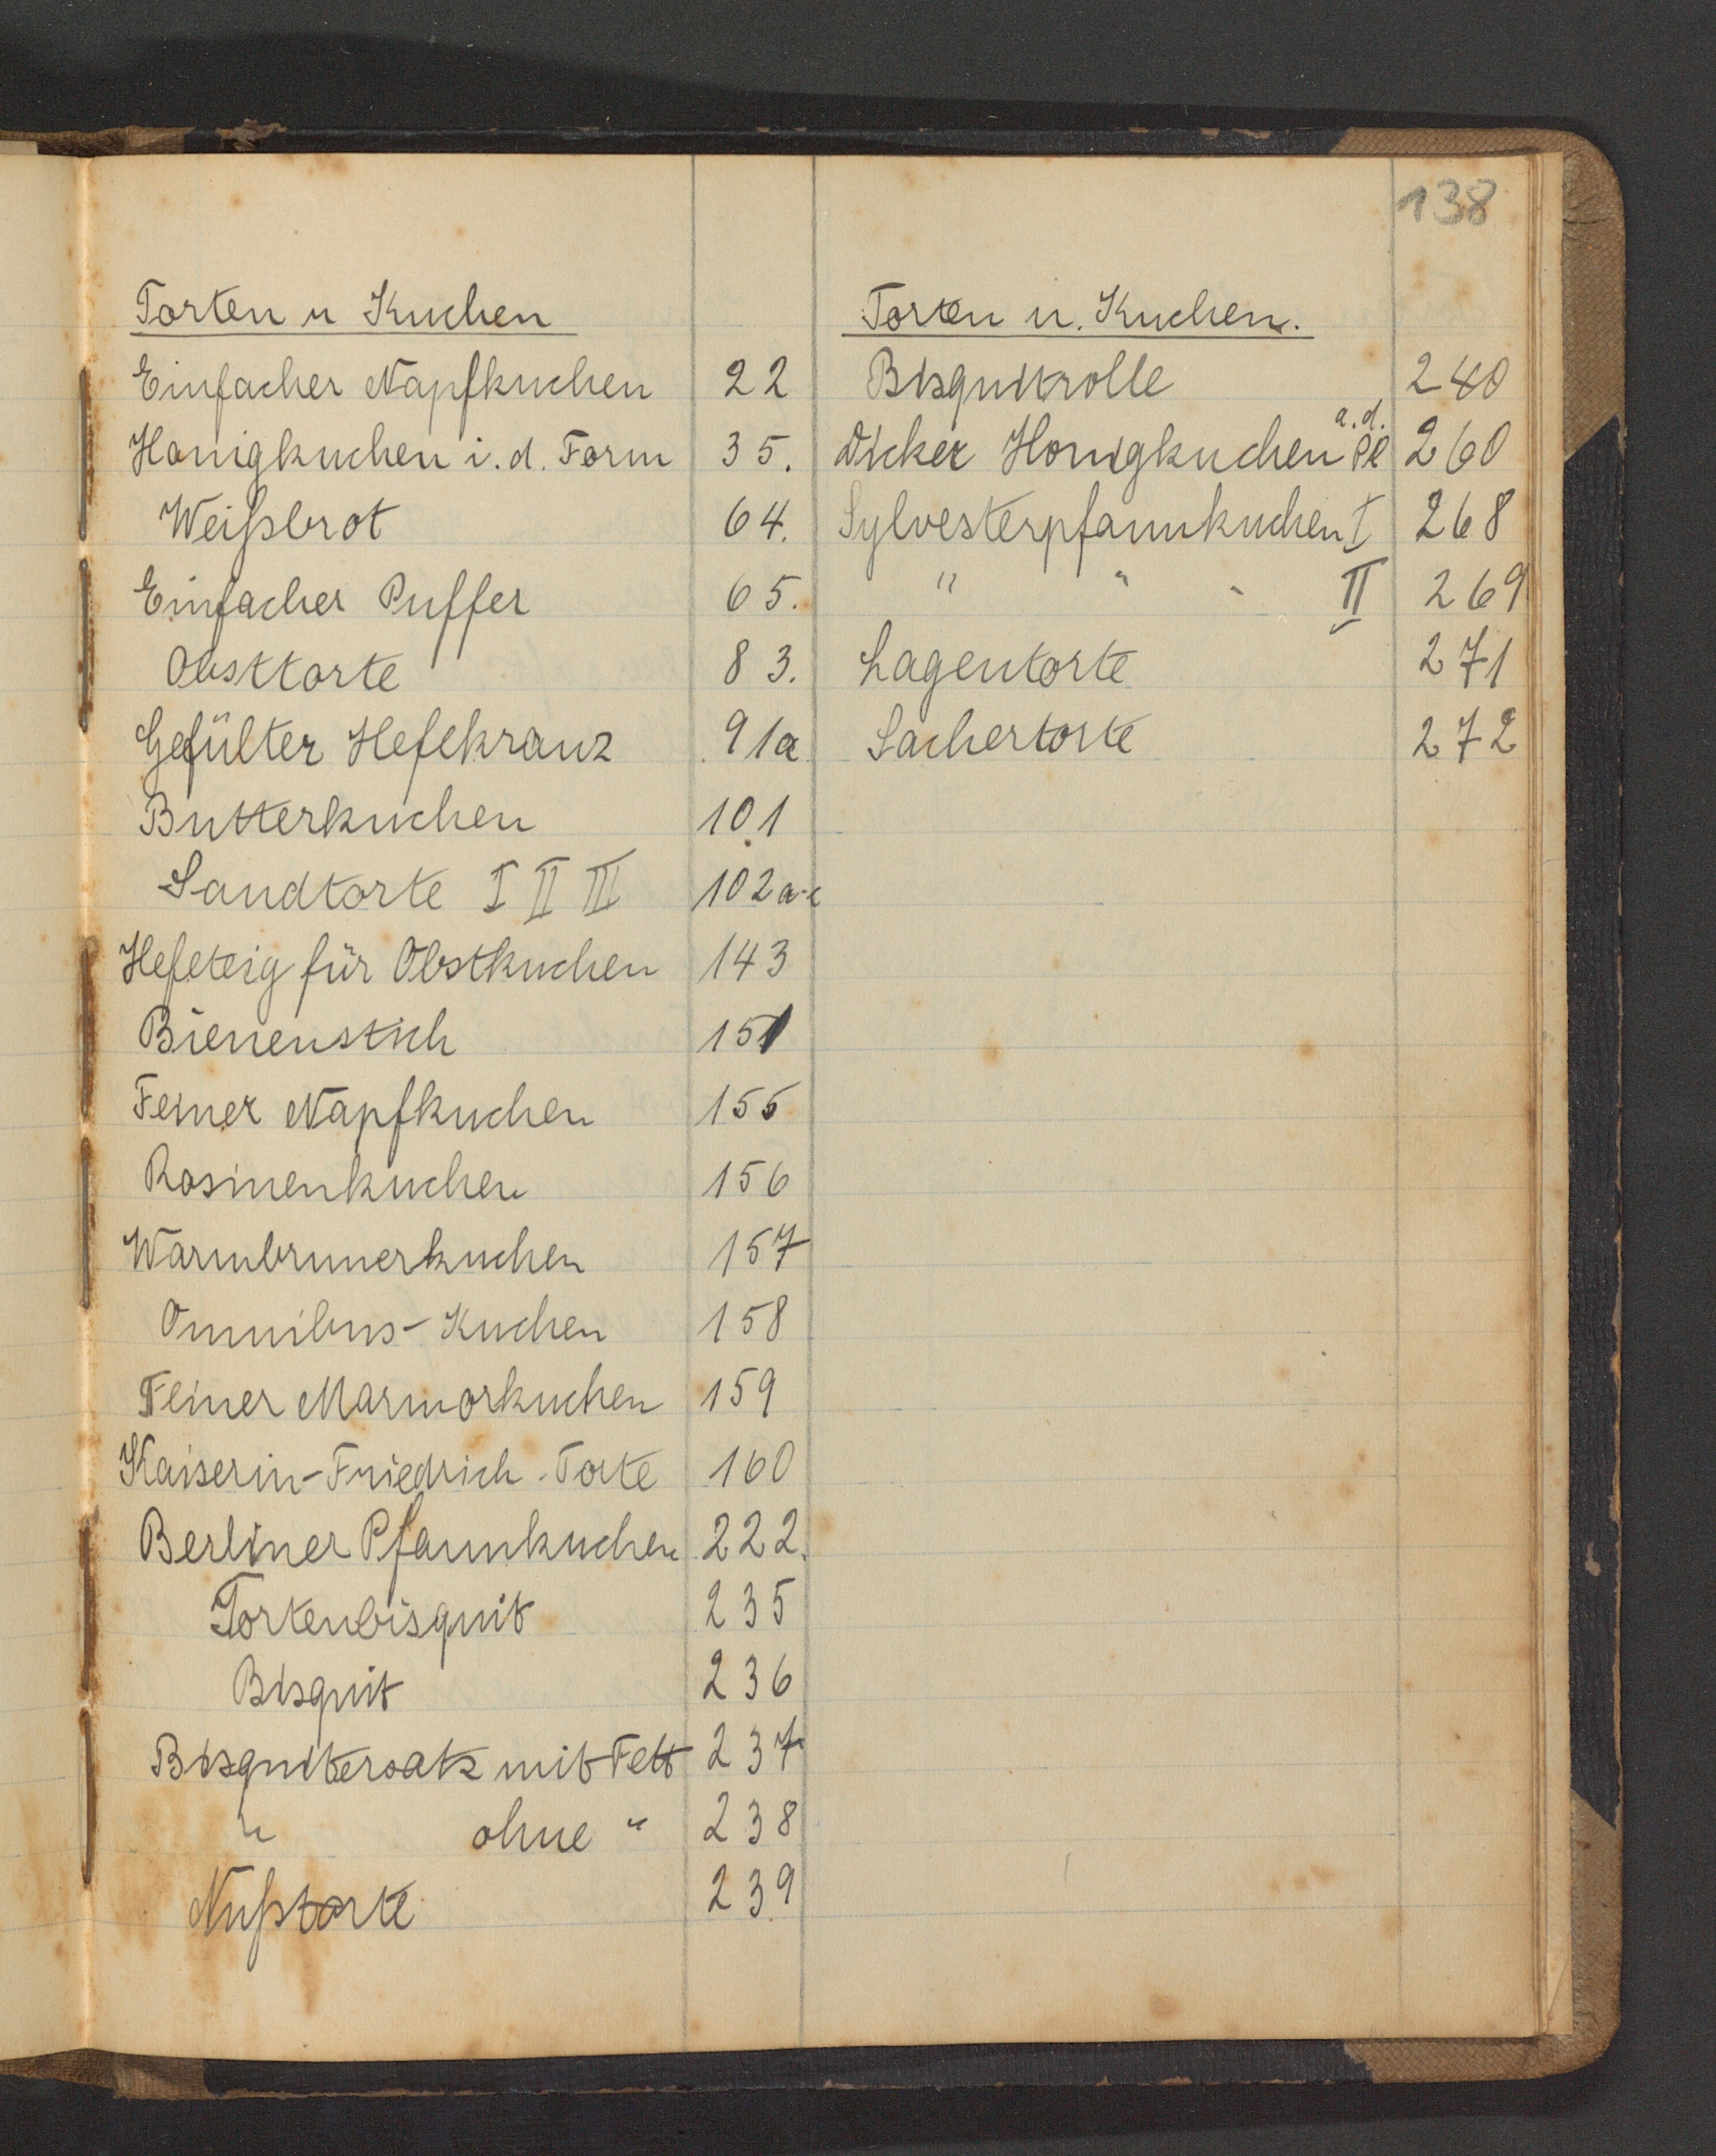 138
Torten u Kuchen
Einfacher Napfkuchen 22
Honigkuchen i. d. Form 35.
Weißbrot 64.
Einfacher Puffer 65.
Obsttorte 83.
Gefülter Hefekranz 91a
Butterkuchen 101
Sandtorte I II III 102a-c
Hefeteig für Obstkuchen 143
Bienenstich 151
Feiner Napfkuchen 155
Rosinenkuchen 156
Warmbrunerkuchen 157
Omnibus-Kuchen 158
Feiner Marmorkuchen 159
Kaiserin-Friedrich-Torte 160
Berliner Pfannkuchen 222.
Tortenbisquit 235
Bisquit 236
Bisquitersatz mit Fett 237
" ohne " 238
Nußtorte 239
Torten u. Kuchen.
Bisquitrolle 240
Dicker Honigkuchen a. d. Pl 260
Sylvesterpfannkuchen I 268
" " " II 269
Lagentorte 271
Sachertorte 272